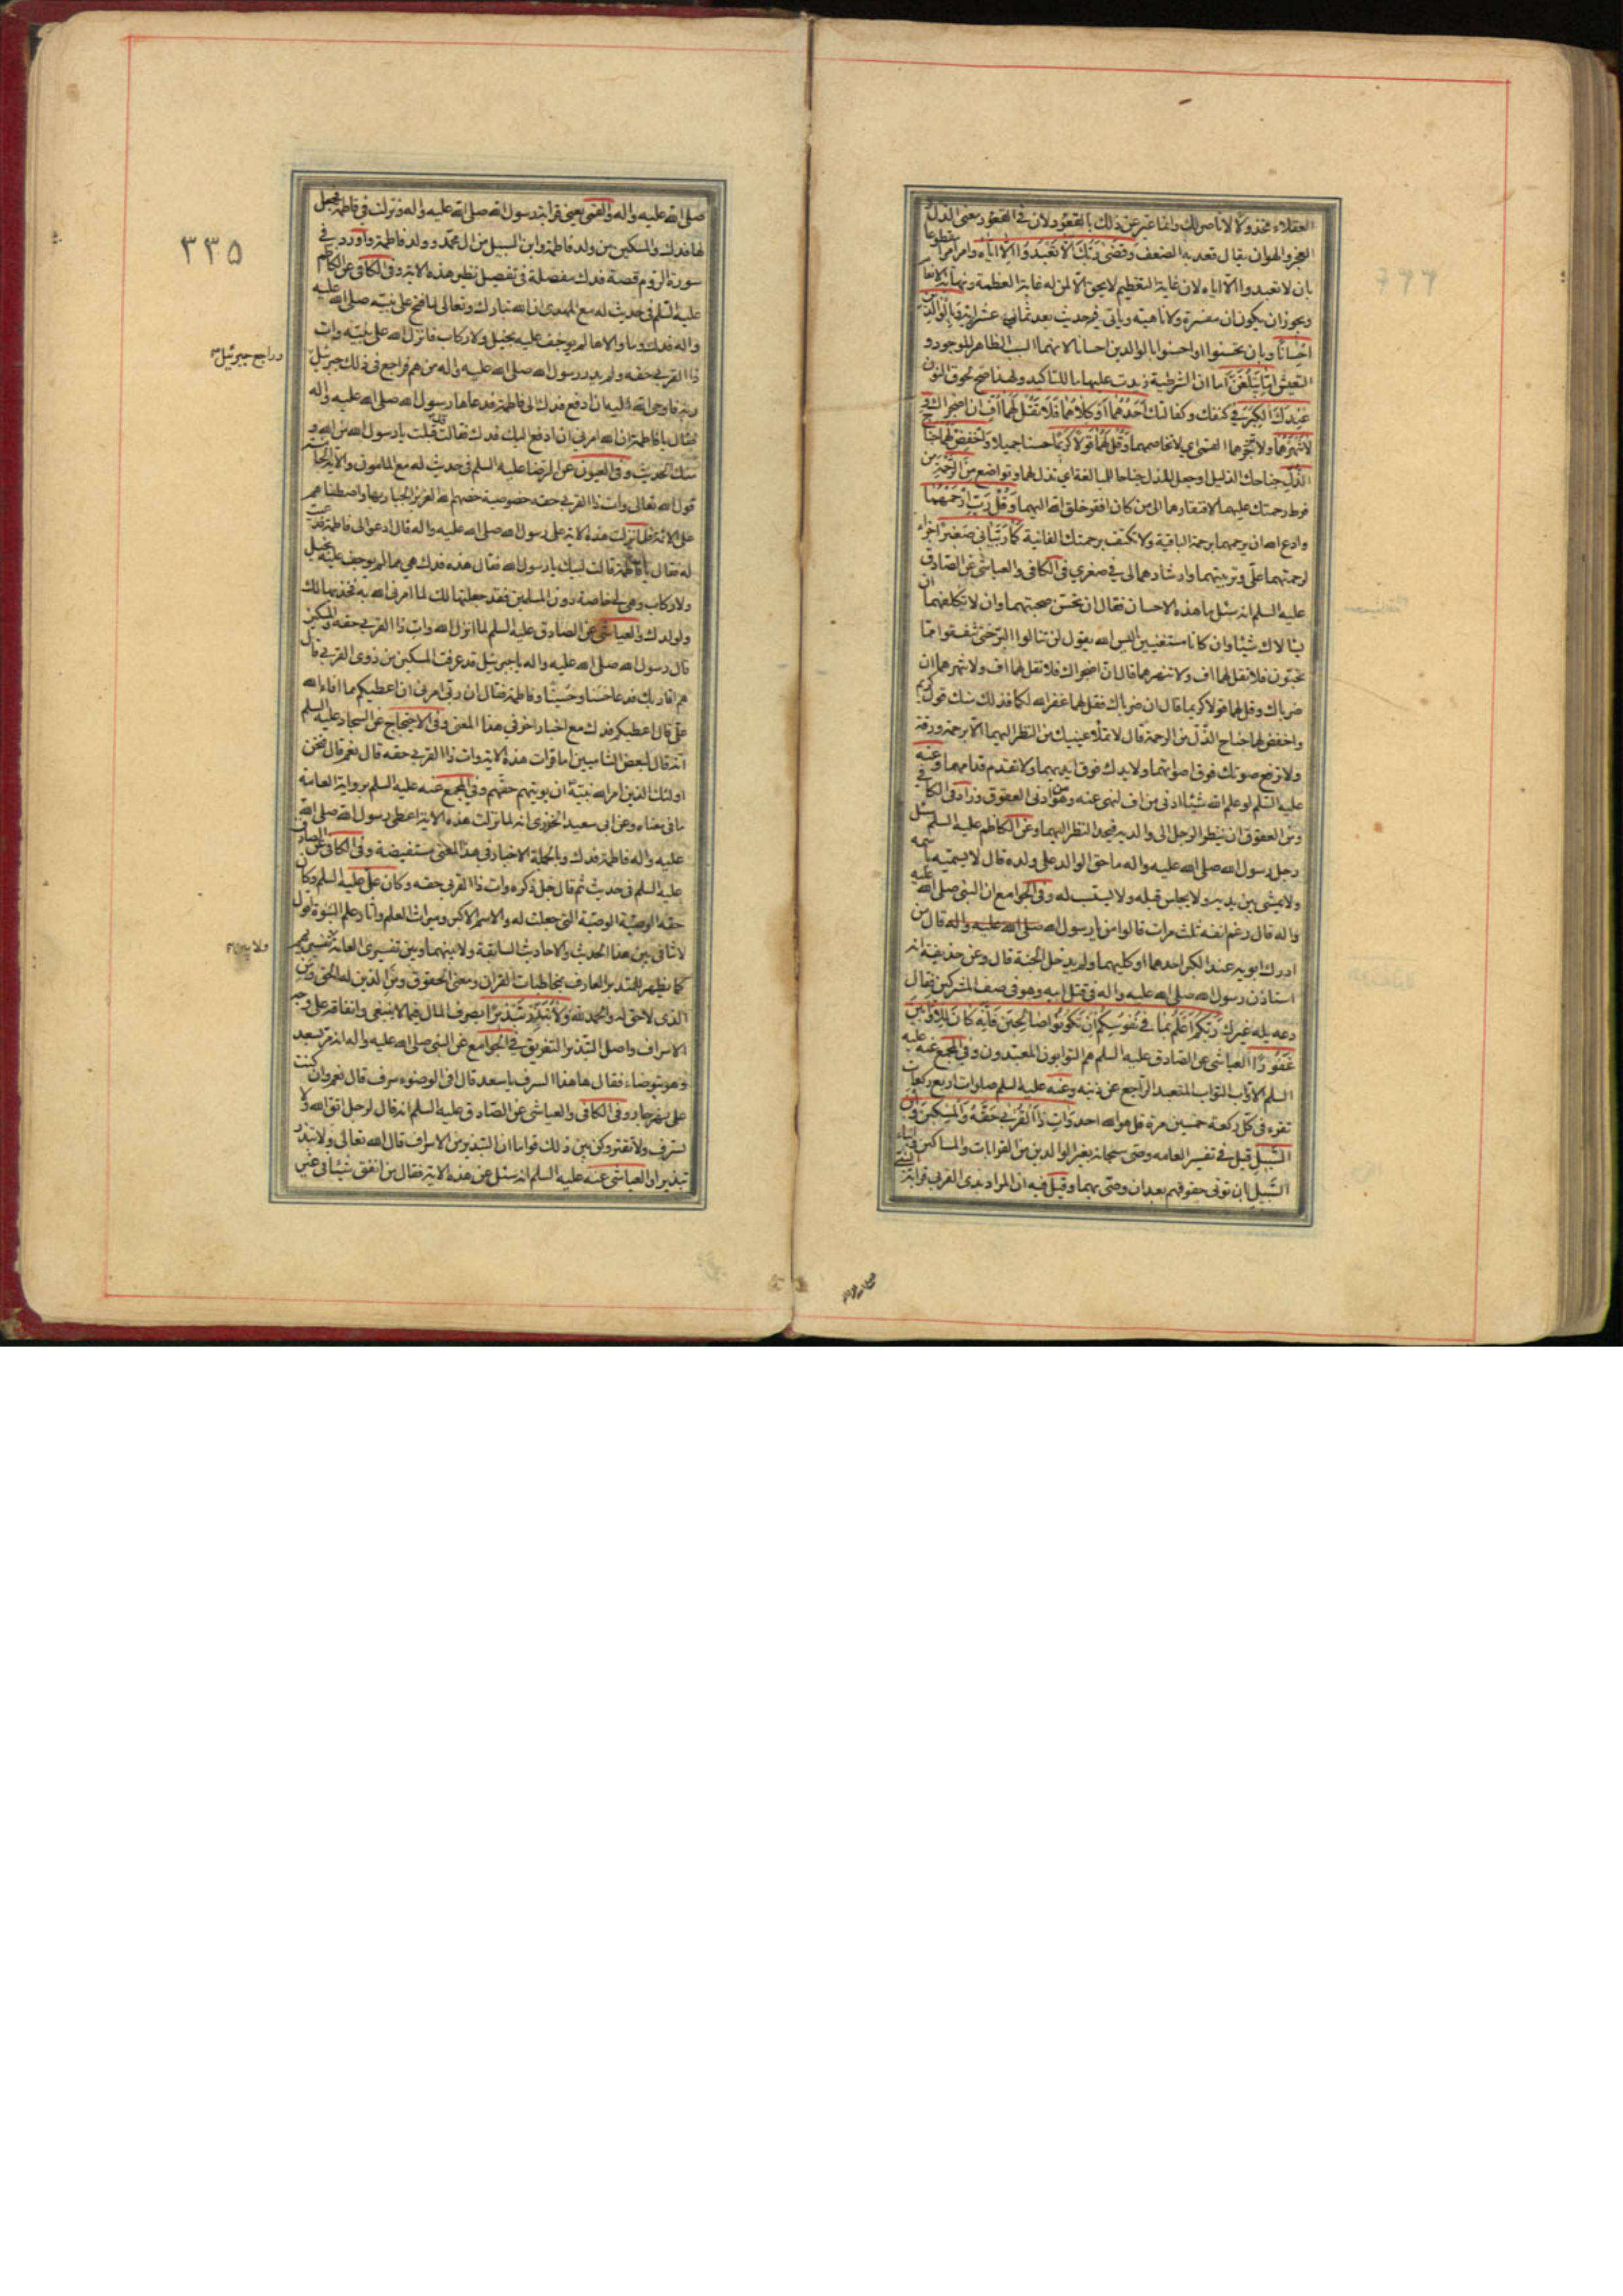 العقلاء مخذولا لا ناصر لك وانما عبر عن ذلك بالقعود لان في القعود معنى الذل
والعجز والهوان يقال قعد به الضعف وَقَضى رَبُّكَ اَلاّ تَعْبُدُوا اِلاّ اِيّاهُ وامر امرا مقطوعا
بان لا تعبدوا الا اياه لان غاية التعظيم لا يحق الا لمن له غاية العظمة ونهاية الانعام
ويجوز ان يكون ان مفسرة ولا ناهية وياتي فيه حديث بعد ثماني عشر اية وَبِالْوالِدَيْنِ
اِحْساناً وبان تحسنوا او احسنوا بالوالدين احسانا لانهما السبب الظاهر للوجود و
التعيش اِمّا يَبْلُغَنَّ اما ان الشرطية زيدت عليها ما للتاكيد ولهذا صح لحوق النون
عِنْدَكَ الْكِبَرَ في كنفك وكفالتك اَحَدُهُما اَوْ كِلاهُما فَلا تَقُلْ لَهُما اُفٍّ ان اضجراك وَ
لا تَنْهَرْهُما ولا تزجرهما اي لا تخاصمهما وَقُلْ لَهُما قَوْلاً كَريماً حسنا جميلا وَاخْفِضْ لَهُما جَناحَ
الذُّلِّ جناحك الذليل او جعل للذل جناحا للمبالغة اي تذلل لهما وتواضع مِنَ الرَّحْمَةِ من
فرط رحمتك عليهما لافتقارهما الى من كان افقر خلق الله اليهما وَقُلْ رَبِّ ارْحَمْهُما
وادع الله ان يرحمهما برحمته الباقية ولا تكتف برحمتك الفانية كَما رَبَّياني صَغيراً جزاء
لرحمتهما علي وتربيتهما وارشادهما لي في صغري في الكافي والعياشي عن الصادق
عليه السلم انه سئل ما هذه الاحسان فقال ان تحسن صحبتهما وان لا تكلفهما ان
يسالاك شيئا وان كانا مستغنيين اليس الله يقول لن تنالوا البر حتى تنفقوا مما
تحبون فلا تقل لهما اف ولا تنهرهما قال ان اضجراك فلا تقل لهما اف ولا تنهرهما ان
ضرباك وقل لهما قولا كريما قال ان ضرباك فقل لهما غفر الله لكما فذلك منك قول كريم
واخفض لهما جناح الذل من الرحمة قال لا تملأ عينيك من النظر اليهما الا برحمة ورقة
ولا ترفع صوتك فوق اصواتهما ولا يدك فوق ايديهما ولا تقدم قدامهما وعنه
عليه السلم لو علم الله شيئا ادنى من اف لنهى عنه وهو من ادنى العقوق وزاد في الكافي
ومن العقوق ان ينظر الرجل الى والديه فيحد النظر اليهما وعن الكاظم عليه السلم سئل
رجل رسول الله صلى الله عليه واله ما حق الوالد على ولده قال لا يسميه باسمه
ولا يمشي بين يديه ولا يجلس قبله ولا يستسب له وفي الجوامع ان النبي صلى الله عليه
واله قال رغم انفه ثلث مرات قالوا من يا رسول الله صلى الله عليه واله قال من
ادرك ابويه عند الكبر احدهما او كليهما ولم يدخل الجنة قال وعن حذيفة انه
استاذن رسول الله صلى الله عليه واله في قتل ابيه وهو في صف المشركين فقال
دعه يله غيرك رَبُّكُمْ اَعْلَمُ بِما في نُفُوسِكُمْ اِنْ تَكُونُوا صالِحينَ فَاِنَّهُ كانَ لِلْاَوّابينَ
غَفُوراً العياشي عن الصادق عليه السلم هم التوابون المتعبدون وفي المجمع عنه عليه
السلم الاواب التواب المتعبد الراجع عن ذنبه وعنه عليه السلم صلوات اربع ركعات
تقرء في كل ركعة خمسين مرة قل هو الله احد وَاتِ ذَا الْقُرْبى حَقَّهُ وَالْمِسْكينَ وَابْنَ
السَّبيلِ قيل في تفسير العامه وصى سبحانه بغير الوالدين من القرابات والمساكين وابناء
السبيل ان توتى حقوقهم بعد ان وصى بهما وقيل فيه ان المراد بذي القربى قرابة النبي
صلى الله عليه واله والقمي يعني قرابة رسول الله صلى الله عليه واله ونزلت في فاطمة فجعل
لها فدك والمسكين من ولد فاطمة وابن السبيل من ال محمد وولد فاطمة واورد في
سورة الروم قصة فدك مفصلة في تفصيل نظير هذه الاية وفي الكافي عن الكاظم
عليه السلم في حديث له مع المهدي ان الله تبارك وتعالى لما فتح على نبيه صلى الله عليه
واله فدك وما والاها لم يوجف عليه بخيل ولا ركاب فانزل الله على نبيه وات
ذا القربى حقه ولم يدر رسول الله صلى الله عليه واله من هم فراجع في ذلك جبرئيل
وراجع جبرئيل
ربه فاوحى الله اليه ان ادفع فدك الى فاطمة فدعاها رسول الله صلى الله عليه واله
فقال يا فاطمة ان الله امرني ان ادفع اليك فدك فقالت قد قبلت يا رسول الله من الله و
منك الحديث وفي العيون عن الرضا عليه السلم في حديث له مع المامون والاية الخامسة
قول الله تعالى وات ذا القربى حقه خصوصية خصهم الله العزيز الجبار بها واصطفاهم
على الامة فلما نزلت هذه الاية على رسول الله صلى الله عليه واله قال ادعوا لي فاطمة فدعيت
له فقال يا فاطمة قالت لبيك يا رسول الله فقال هذه فدك هي مما لم يوجف عليه بخيل
ولا ركاب وهي لي خاصة دون المسلمين فقد جعلتها لك لما امرني الله به فخذيها لك
ولولدك والعياشي عن الصادق عليه السلم لما انزل الله وات ذا القربى حقه والمسكين
قال رسول الله صلى الله عليه واله يا جبرئيل قد عرفت المسكين من ذوي القربى قال
هم اقاربك فدعا حسنا وحسينا وفاطمة فقال ان ربي امرني ان اعطيكم مما افاء الله
علي قال اعطيكم فدك مع اخبار اخر في هذا المعنى وفي الاحتجاج عن السجاد عليه السلم
انه قال لبعض الشاميين اما قرات هذه الاية وات ذا القربى حقه قال نعم قال فنحن
اولئك الذين امر الله نبيه ان يوتيهم حقهم وفي المجمع عنه عليه السلم برواية العامة
ما في معناه وعن ابي سعيد الخدري انه لما نزلت هذه الاية اعطى رسول الله صلى الله
عليه واله فاطمة فدك وبالجملة الاخبار في هذا المعنى مستفيضة وفي الكافي عن الصادق
عليه السلم في حديث ثم قال جل ذكره وات ذا القربى حقه وكان علي عليه السلم وكان
حقه الوصية التي جعلت له والاسم الاكبر وميراث العلم واثار علم النبوة اقول
لا تنافي بين هذا الحديث والاحاديث السابقة ولا بينهما وبين تفسيري العامة
كما يظهر للمتدبر العارف بمخاطبات القران ومعنى الحقوق ومن الذين له الحق ومن
الذي لا حق له والحمد لله وَلا تُبَذِّرْ تَبْذيراً بصرف المال فيما لا ينبغي وانفاقه على وجه
الاسراف واصل التبذير التفريق في الجوامع عن النبي صلى الله عليه واله انه مر بسعد
وهو يتوضاء فقال ما هذا السرف يا سعد قال افي الوضوء سرف قال نعم وان كنت
على نهر جار وفي الكافي والعياشي عن الصادق عليه السلم انه قال لرجل اتق الله ولا
تسرف ولا تقتر وكن بين ذلك قواما ان التبذير من الاسراف قال الله تعالى ولا تبذر
تبذيرا والعياشي عنه عليه السلم انه سئل عن هذه الاية فقال من انفق شيئا في غير
٣٣٥